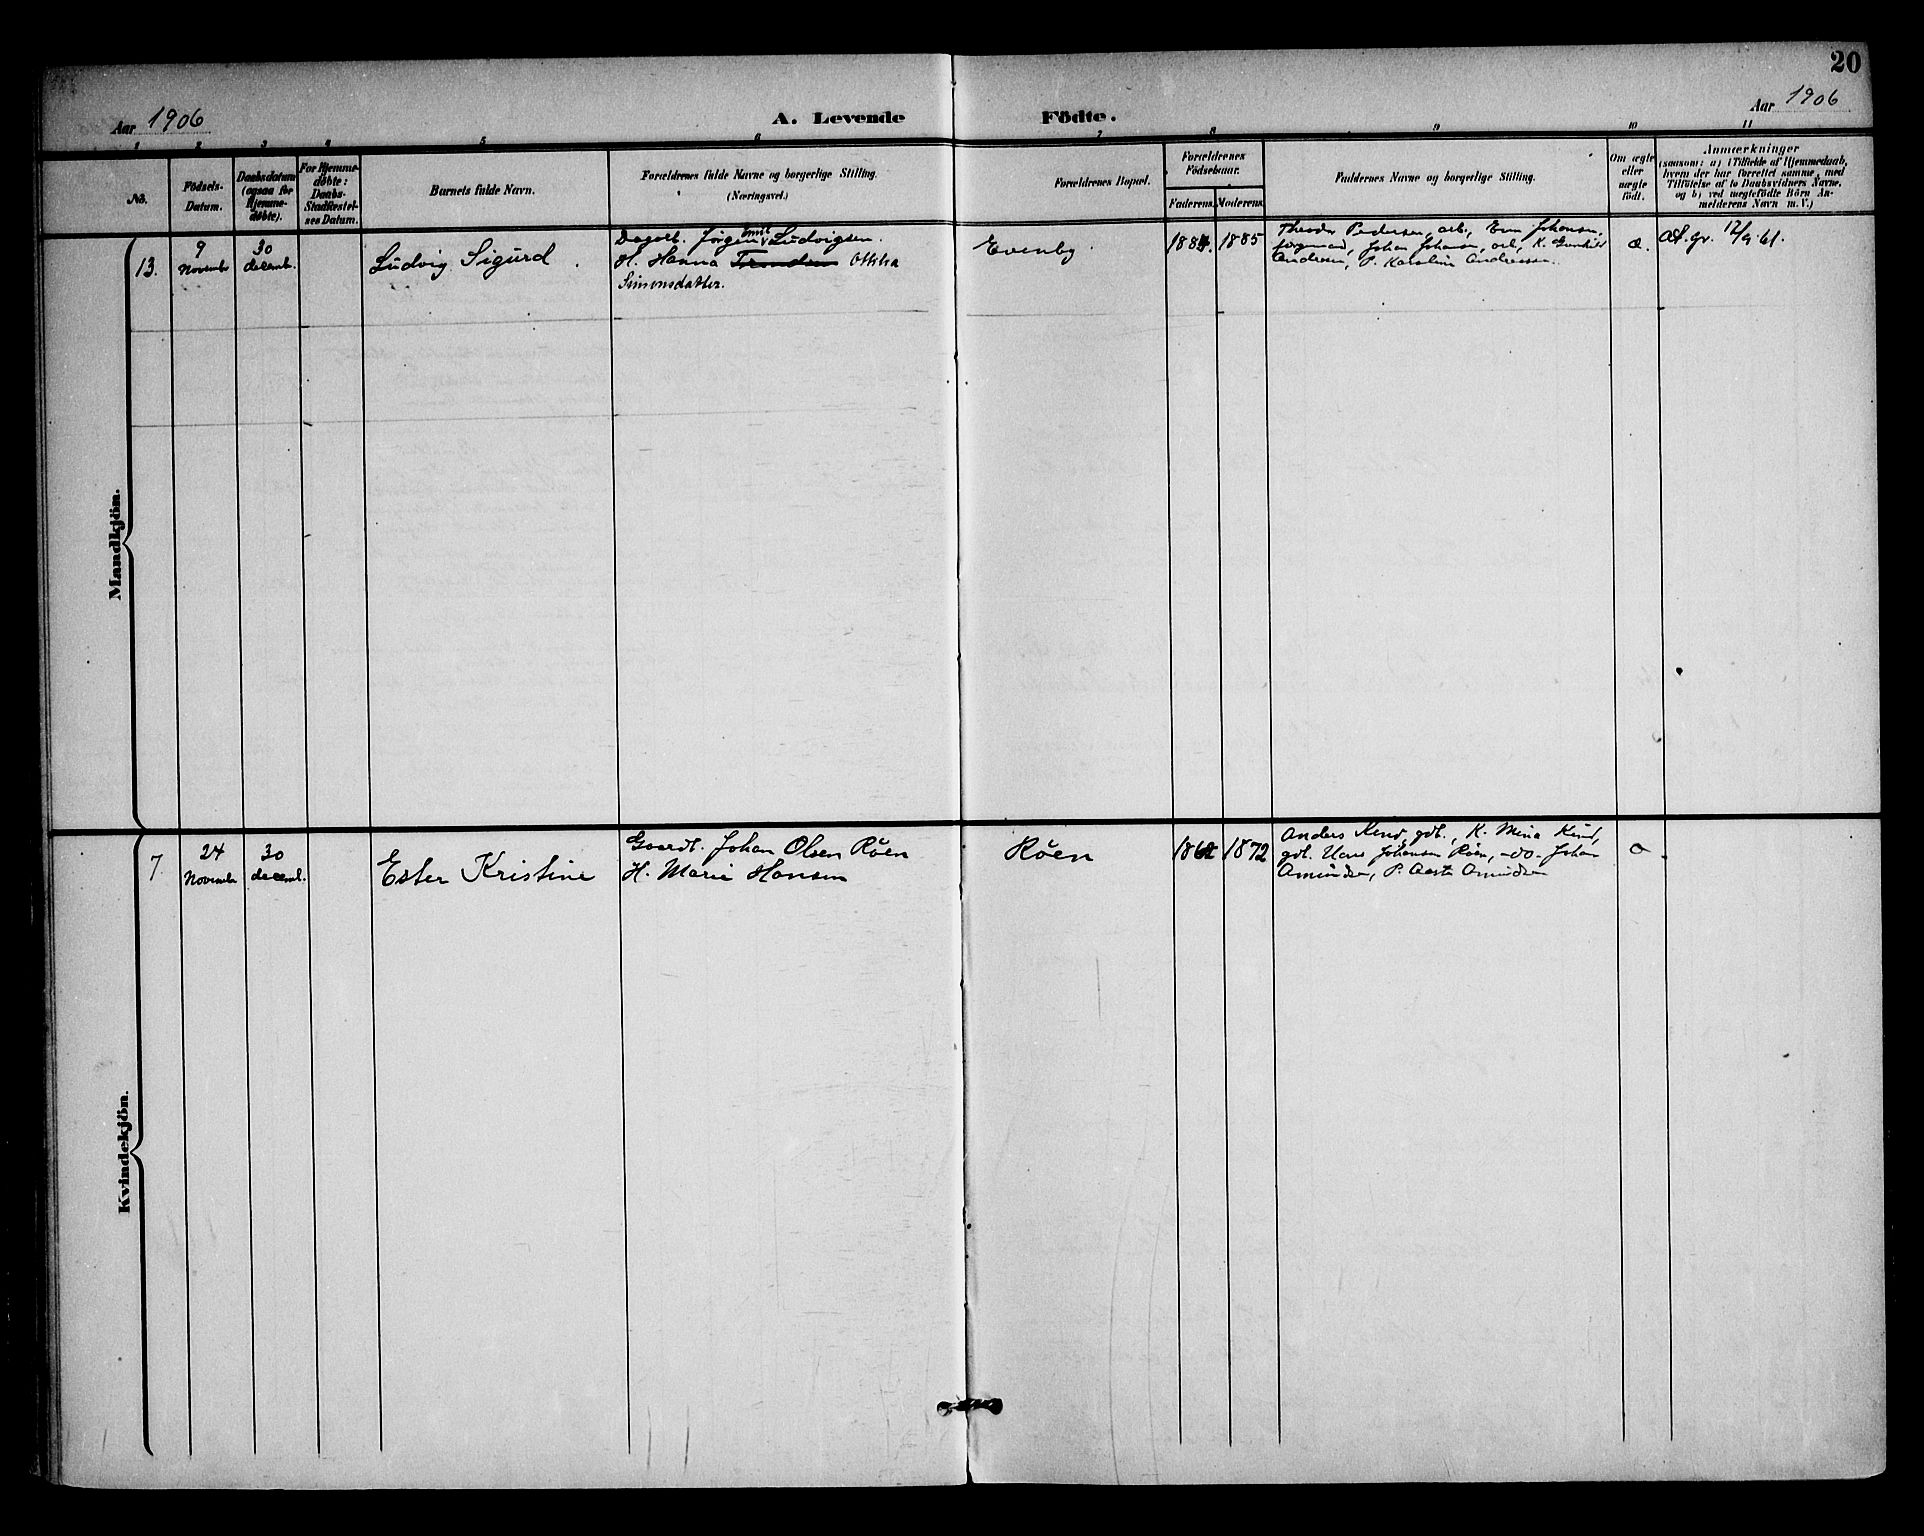 20
Aar 1906
A. Levende Födte.
Aar 1906
1 2 3 4 5 6 7 8 9 10 11
No.
Födsels-
Datum.
Daabsdatum
(ogsaa for
Hjemme-
døbte).
For Hjemme-
døbte:
Daabs-
Stadfæstel-
ses Datum.
Barnets fulde Navn.
Forældrenes fulde Navne og borgerlige Stilling.
(Næringsvei.)
Forældrenes Bopæl.
Forældrenes
Födselsaar.
Faderens. Moderens.
Faddernes Navne og borgerlige Stilling.
Om ægte
eller
uægte
født.
Anmærkninger
(saasom: a) i Tilfælde af Hjemmedaab,
hvem der har forrettet samme, med
Tilføielse af to Daabsvidners Navne,
og b) ved uægtefødte Börn An-
melderens Navn m. V.)
Mandkjön.
13.
9
November
30
decemb.
Ludvig Sigurd
Dagarb. Jörgen Emil Ludvigsen.
H. Hanna Othilia
Simonsdatter.
Evenby
1884. 1885
Theodor Pedersen, arb., Johansen,
Johan Johansen, arb., K. Gunhild
Andersen, P. Karoline Andreassen.
æ.
Att. gr. 12/9 61.
Kvindekjön.
7.
24
November
30
decemb.
Ester Kristine
Gaardb. Johan Olsen Röen
H. Marie Hansen
Röen
1862 1872
Anders Kind, gdb., K. Mina Kind,
gdb. Hans Johansen Röen, -do- Johan
Amundsen, P. Aasta Amundsen